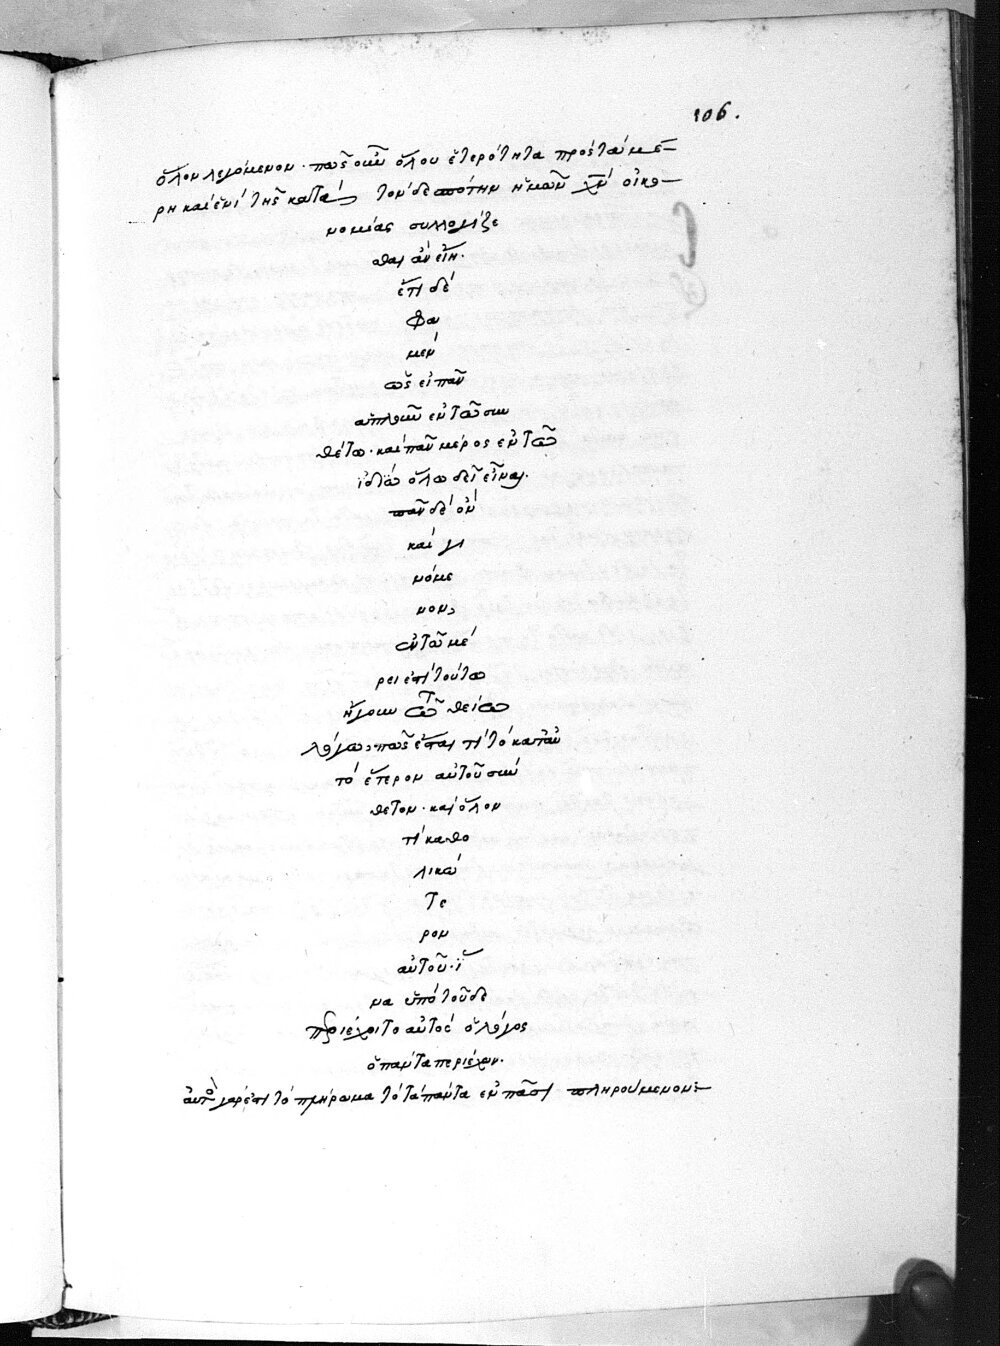 106.
ὅλον λεγόμενον· πῶς οὖν ὅλου ἑτερότητα πρὸς τὰ μέ-
ρη καὶ ἐπὶ τῆς κατὰ τὸν δεσπότην ἡμῶν χ̅ν̅ οἰκο-
νομίας συλλογίζε
σθαι ἂν εἴη·
ἔτι δὲ
φα
μὲν
ὡς εἰ πᾶν
ἁπλοῦν ἐν τῶ συν
θέτω· καὶ πᾶν μέρος ἐν τῶ
ἰδίω ὅλω δεῖ εἶναι·
πᾶν δὲ ὂν
καὶ γι
νόμε
νον,
ἐν τῶ μέ
ρει ἐπὶ τούτω
ἤγουν τῶ θείω
λόγω, πῶς ἔσται τί τὸ κατ' αὐ
τὸ ἕτερον αὐτοῦ σύν
θετον· καὶ ὅλον
τί καθο
λικώ
τε
ρον
αὐτοῦ· ἵ
να ὑπὸ τοῦδε
περιέχοιτο αὐτὸς ὁ λόγος
ὁ πάντα περιέχων·
αὐτὸς γάρ ἐστι τὸ πλήρωμα τὸ τὰ πάντα ἐν πᾶσι πληρούμενον:-